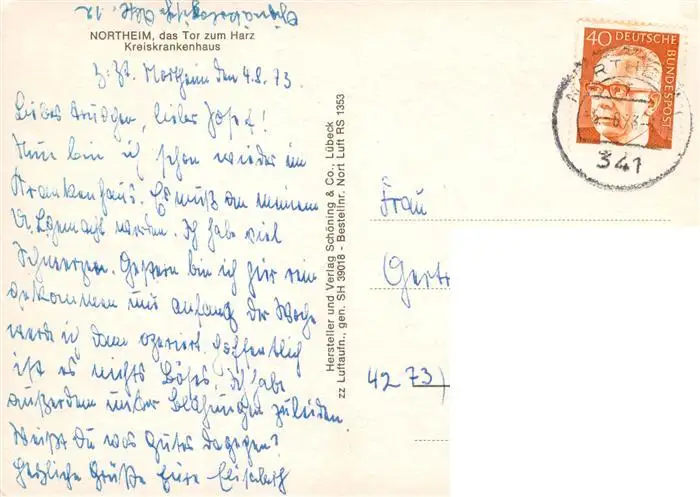 NORTHEIM, das Tor zum Harz
Kreiskrankenhaus
z. Zt. Northeim den 4.8.73.
Liebes Trudchen, lieber Josef!
Nun bin ich schon wieder im
Krankenhaus. Es muß an meinem
gemacht werden. Ich habe viel
Schmerzen. Gestern bin ich hier rein
gekommen und anfang der Woche
werde ich dann operiert. Hoffentlich
ist es nichts Böses. Ich habe
außerdem unter Blähungen zu leiden.
Weißt Du was gutes dagegen?
Herzliche Grüße Eure Elisabeth
Hersteller und Verlag Schöning & Co., Lübeck
zz Luftaufn., gen. SH 39018 - Bestellnr. Nort Luft RS 1353
40 DEUTSCHE BUNDESPOST
341
Frau
Gertr
4273)